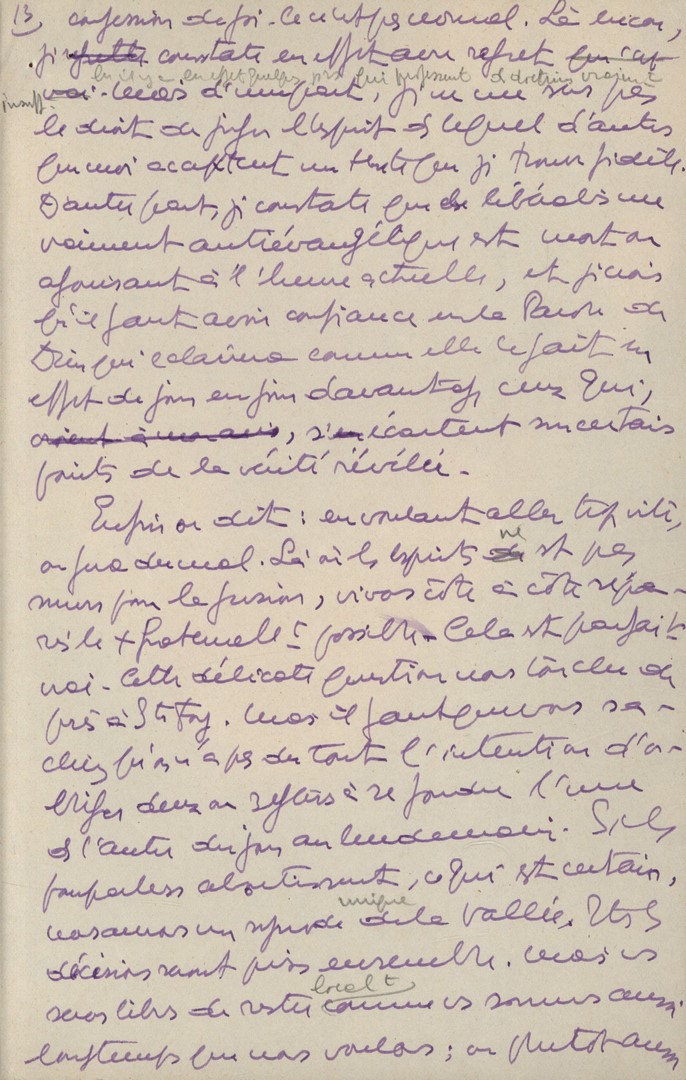 13, confession de foi. Ce n'est pas normal. Là encore,
je constate en effet avec regret
qu'il y a en effet quelques qui professent d doctrines vraiment
insuff
mais d'une part, je ne me sens pas
le droit de juger l'esprit ds lequel d'autres
que moi acceptent un texte que je trouve fidèle.
D'autre part, je constate que le libéralisme
vraiment antiévangélique est mort ou
agonisant à l'heure actuelle, et je crois
qu'il faut avoir confiance en la Parole de
Dieu qui éclairera comme elle le fait en
effet de jour en jour davantage, ceux qui,
, s'écartent sur certains
points de la vérité révélée.
Enfin on dit : en voulant aller trop vite,
on fera du mal. Là où les esprits ne st pas
mûrs pour la fusion, vivons côte à côte sépa-
rés le + fraternellet possible. Cela est parfait
vrai. Cette délicate question nous touche de
près à Ste Foy. Mais il faut que vous sa-
chiez qu'on n'a pas du tout l'intention d'o-
bliger deux églises à se fondre l'une
ds l'autre du jour au lendemain. Si les
pourparlers aboutissent, ce qui est certain,
nous aurons un synode unique de la Vallée. Et les
décisions seront prises ensemble. Mais ns
serons libres de rester localt comme ns sommes aussi
longtemps que nous voulons ; ou plutôt aussi